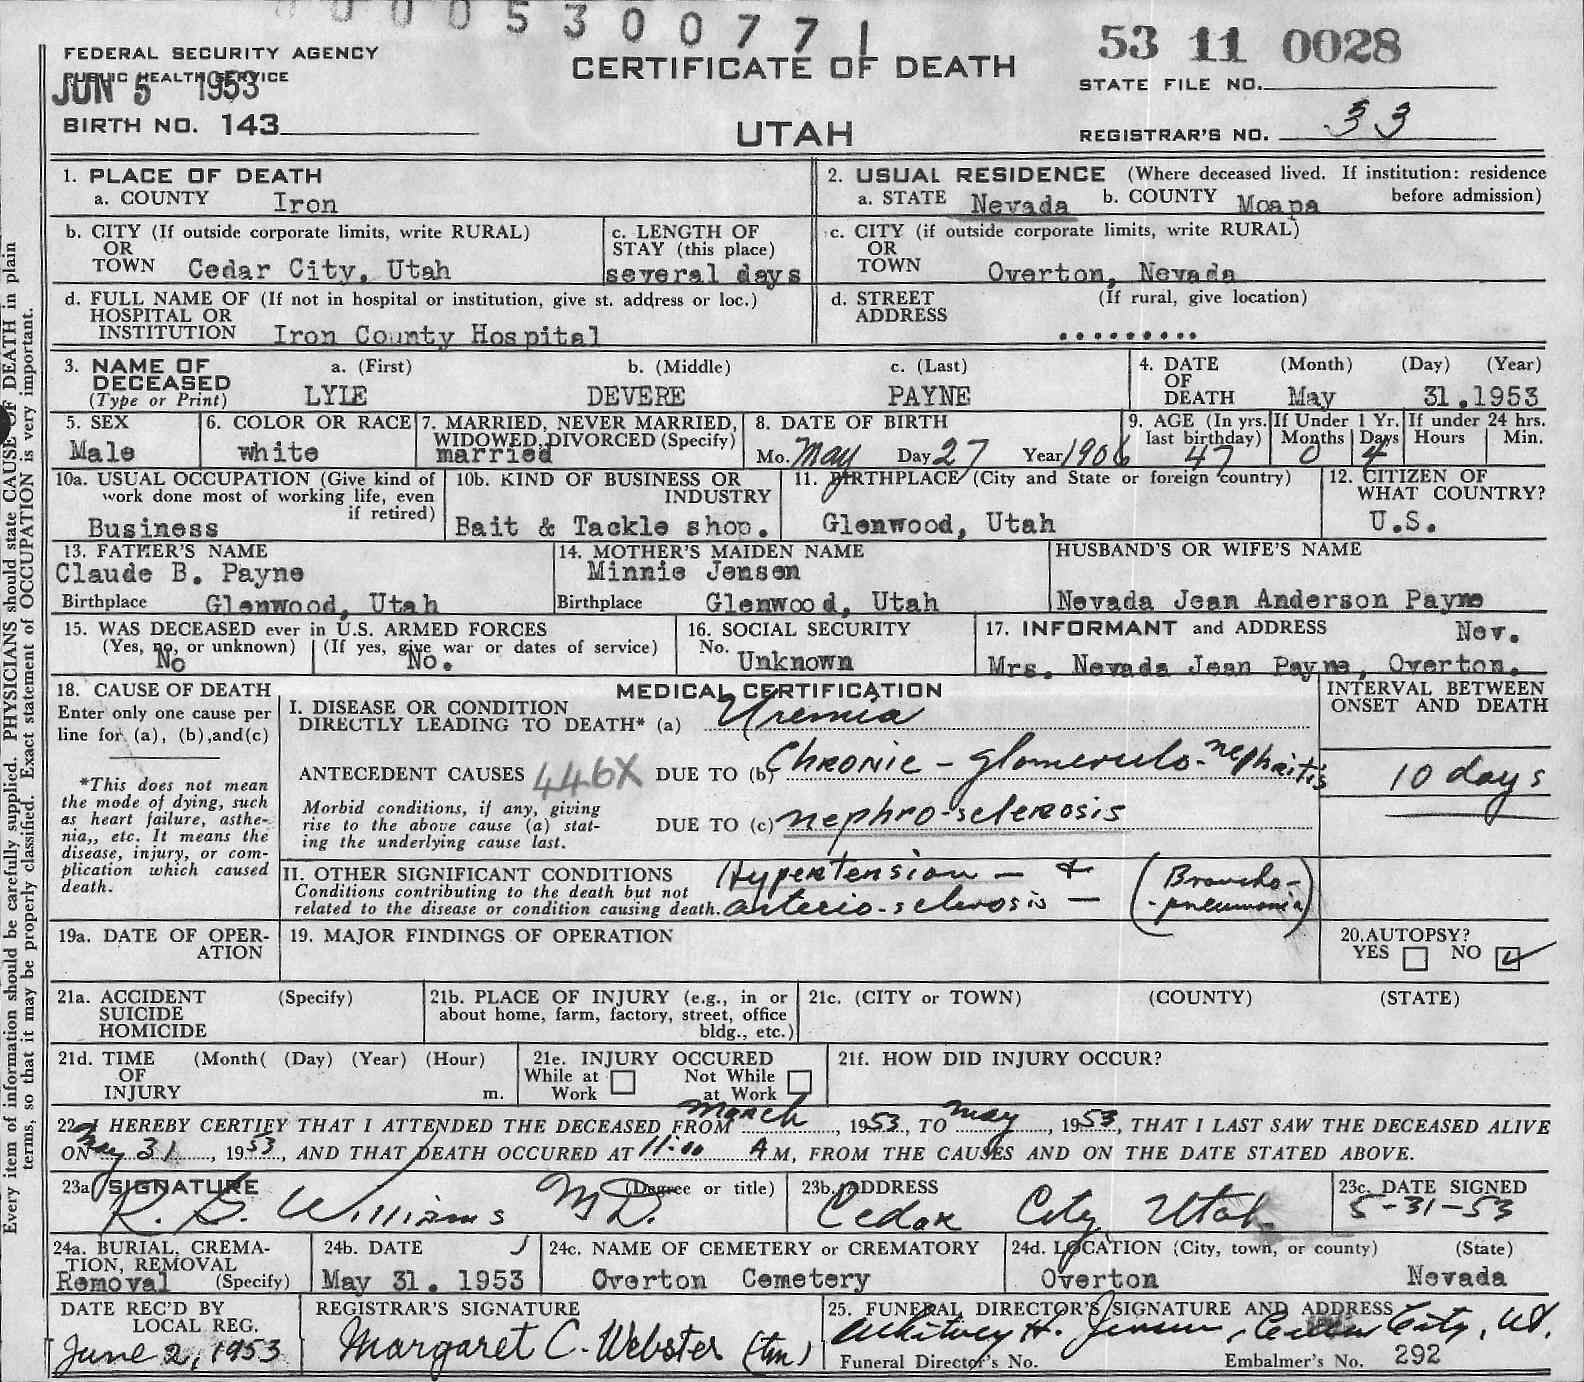 0 0 0 5 3 0 0 7 7 1
53 11 0028
FEDERAL SECURITY AGENCY
PUBLIC HEALTH SERVICE
JUN 5 1953
CERTIFICATE OF DEATH
STATE FILE NO.
BIRTH NO. 143
UTAH
REGISTRAR'S NO. 33
Every item of information should be carefully supplied. PHYSICIANS should state CAUSE OF DEATH in plain
terms, so that it may be properly classified. Exact statement of OCCUPATION is very important.
1. PLACE OF DEATH
a. COUNTY Iron
2. USUAL RESIDENCE (Where deceased lived. If institution: residence
before admission)
a. STATE Nevada b. COUNTY Moapa
b. CITY (If outside corporate limits, write RURAL)
OR
TOWN Cedar City, Utah
c. LENGTH OF
STAY (this place)
several days
c. CITY (if outside corporate limits, write RURAL)
OR
TOWN Overton, Nevada
d. FULL NAME OF (If not in hospital or institution, give st. address or loc.)
HOSPITAL OR
INSTITUTION Iron County Hospital
d. STREET (If rural, give location)
ADDRESS .........
3. NAME OF a. (First) b. (Middle) c. (Last)
DECEASED
(Type or Print) LYLE DEVERE PAYNE
4. DATE (Month) (Day) (Year)
OF
DEATH May 31.1953
5. SEX
Male
6. COLOR OR RACE
white
7. MARRIED, NEVER MARRIED,
WIDOWED, DIVORCED (Specify)
married
8. DATE OF BIRTH
Mo. May Day 27 Year 1906
9. AGE (In yrs. If Under 1 Yr. If under 24 hrs.
last birthday) Months Days Hours Min.
47 0 4
10a. USUAL OCCUPATION (Give kind of
work done most of working life, even
if retired)
Business
10b. KIND OF BUSINESS OR
INDUSTRY
Bait & Tackle shop.
11. BIRTHPLACE (City and State or foreign country)
Glenwood, Utah
12. CITIZEN OF
WHAT COUNTRY?
U.S.
13. FATHER'S NAME
Claude B. Payne
Birthplace Glenwood, Utah
14. MOTHER'S MAIDEN NAME
Minnie Jensen
Birthplace Glenwood, Utah
HUSBAND'S OR WIFE'S NAME
Nevada Jean Anderson Payne
15. WAS DECEASED ever in U.S. ARMED FORCES
(Yes, no, or unknown) (If yes, give war or dates of service)
No No.
16. SOCIAL SECURITY
No. Unknown
17. INFORMANT and ADDRESS Nev.
Mrs. Nevada Jean Payne, Overton,
18. CAUSE OF DEATH
Enter only one cause per
line for (a), (b), and (c)
*This does not mean
the mode of dying, such
as heart failure, asthe-
nia,, etc. It means the
disease, injury, or com-
plication which caused
death.
MEDICAL CERTIFICATION
I. DISEASE OR CONDITION
DIRECTLY LEADING TO DEATH* (a) Uremia
ANTECEDENT CAUSES 446X DUE TO (b) Chronic - glomerulo-nephritis
Morbid conditions, if any, giving
rise to the above cause (a) stat-
ing the underlying cause last.
DUE TO (c) nephro-sclerosis
INTERVAL BETWEEN
ONSET AND DEATH
10 days
II. OTHER SIGNIFICANT CONDITIONS
Conditions contributing to the death but not
related to the disease or condition causing death.
Hypertension - &
arterio-sclerosis - (Broncho-
-pneumonia)
19a. DATE OF OPER-
ATION
19. MAJOR FINDINGS OF OPERATION
20. AUTOPSY?
YES NO
21a. ACCIDENT (Specify)
SUICIDE
HOMICIDE
21b. PLACE OF INJURY (e.g., in or
about home, farm, factory, street, office
bldg., etc.)
21c. (CITY or TOWN) (COUNTY) (STATE)
21d. TIME (Month( (Day) (Year) (Hour)
OF
INJURY m.
21e. INJURY OCCURED
While at Not While
Work at Work
21f. HOW DID INJURY OCCUR?
22. I HEREBY CERTIFY THAT I ATTENDED THE DECEASED FROM March, 1953, TO May, 1953, THAT I LAST SAW THE DECEASED ALIVE
ON May 31, 1953, AND THAT DEATH OCCURED AT 11:00 A M, FROM THE CAUSES AND ON THE DATE STATED ABOVE.
23a SIGNATURE (Degree or title)
R. G. Williams MD.
23b. ADDRESS
Cedar City Utah
23c. DATE SIGNED
5-31-53
24a. BURIAL, CREMA-
TION, REMOVAL
Removal (Specify)
24b. DATE
May 31. 1953
24c. NAME OF CEMETERY or CREMATORY
Overton Cemetery
24d. LOCATION (City, town, or county) (State)
Overton Nevada
DATE REC'D BY
LOCAL REG.
June 2, 1953
REGISTRAR'S SIGNATURE
Margaret C. Webster (tm)
25. FUNERAL DIRECTOR'S SIGNATURE AND ADDRESS
Whitney H. Jensen, Cedar City, Ut.
Funeral Director's No. Embalmer's No. 292